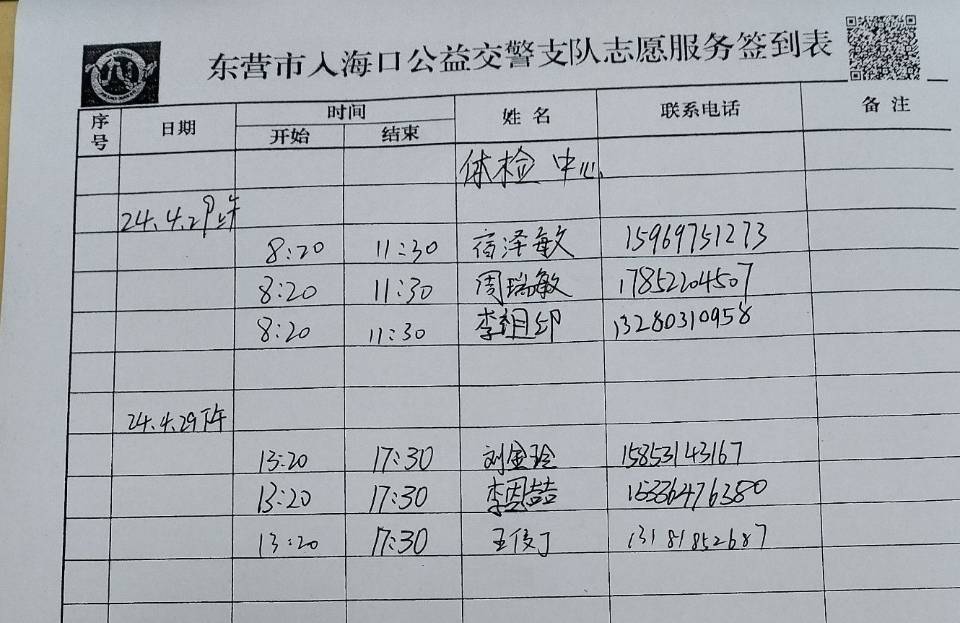 东营市入海口公益交警支队志愿服务签到表
序号 日期 时间 姓名 联系电话 备注
开始 结束
体检中心
24.4.29上午
8:20 11:30 宿泽敏 15969751273
8:20 11:30 周瑞敏 17852204507
8:20 11:30 李祖邱 13280310958
24.4.29下午
13:20 17:30 刘金玲 15853143167
13:20 17:30 李恩喆 15336476380
13:20 17:30 王俊丁 13181852687